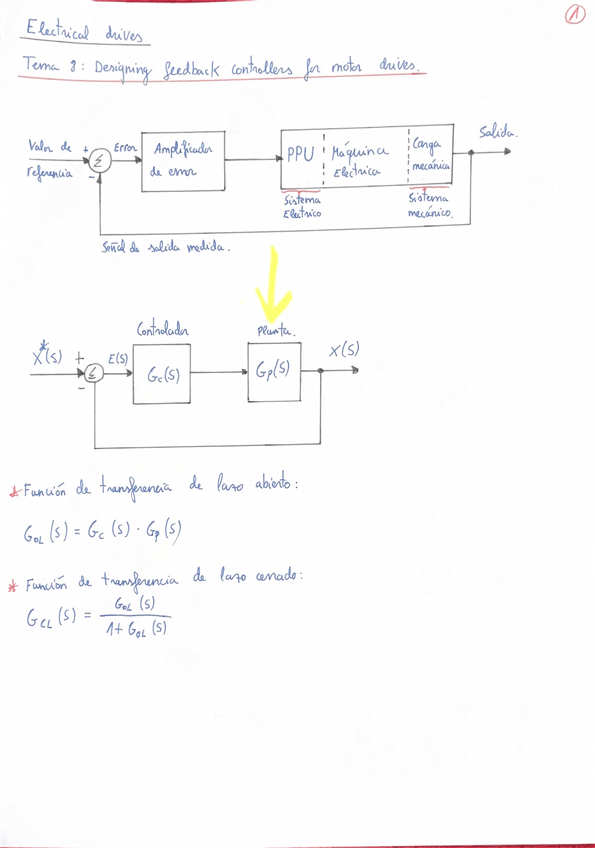 1
Electrical drives
Tema 8: Designing feedback controllers for motor drives.
Valor de referencia
+
-
Σ
Error
Amplificador de error
PPU
Máquina Electrica
Carga mecánica
Salida.
Sistema Electrico
Sistema mecánico.
Señal de salida medida.
Controlador
Planta.
X*(s)
+
-
Σ
E(s)
Gc(s)
Gp(s)
X(s)
* Función de transferencia de lazo abierto:
G_OL (s) = Gc (s) · Gp (s)
* Función de transferencia de lazo cerrado:
G_CL (s) = G_OL (s) / 1 + G_OL (s)